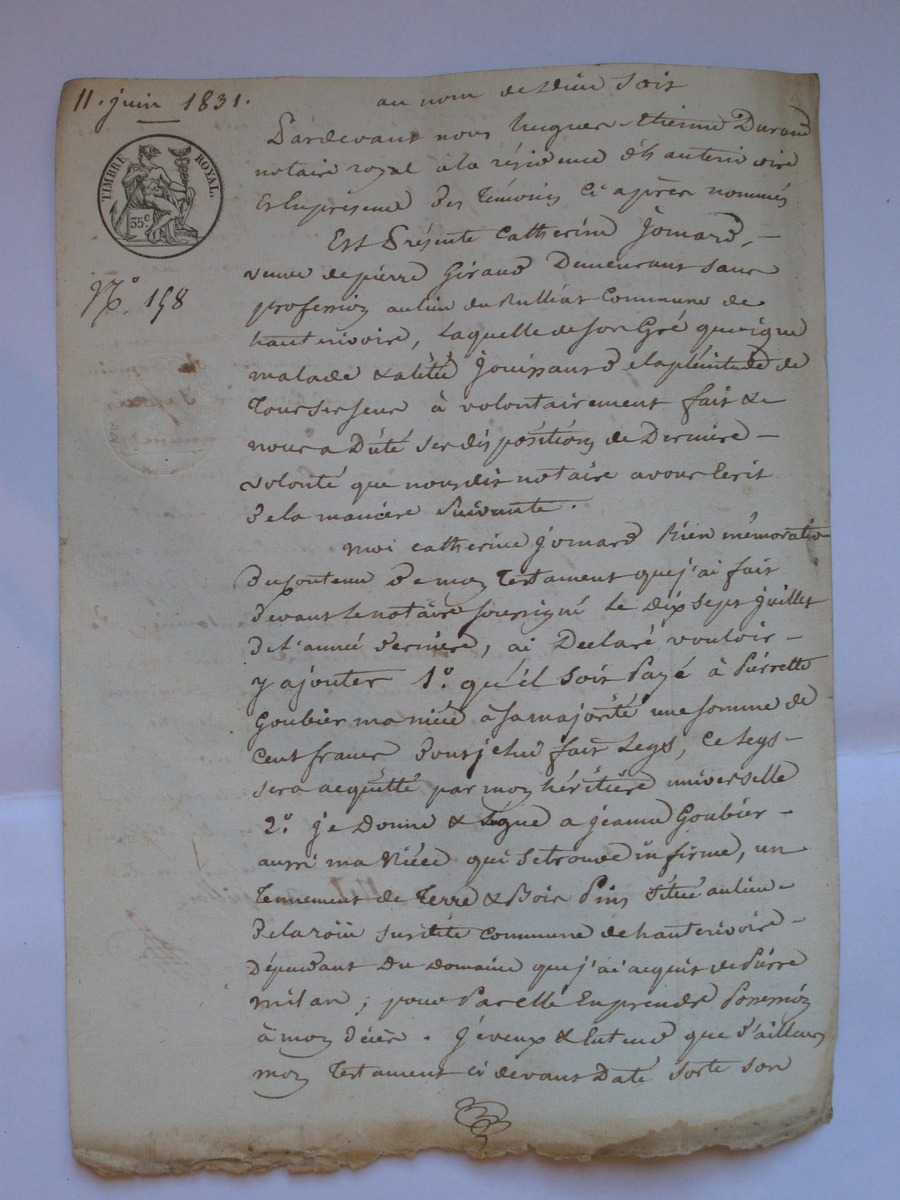 11. juin 1831.
au nom de Dieu Soit
TIMBRE ROYAL.
35c.
No. 158
Pardevant nous hugues Etienne Durand
notaire royal à la résidence d'hauterivoire
Et En présence des témoins Ci après nommés
Est Présente Catherine Jomard, -
veuve de pierre Giraud Demeurant Sans
profession au lieu du Rulliat Commune de
hauterivoire, Laquelle de Son Gré quoique
malade & alitée Jouissant de la plénitude de
Tous ses Sens à volontairement fait &
nous a Dicté ses dispositions de Dernière -
volonté que nousdit notaire avons Ecrit
de la manière Suivante.
Moi Catherine Jomard Bien mémorative
du Contenu de mon Testament que j'ai fait
devant le notaire soussigné Le Dix Sept Juillet
de l'année dernière, ai Déclaré vouloir -
y ajouter 1o. qu'il Soit Payé à Pierrette
Goubier ma nièce à Sa majorité une Somme de
Cent francs dont je lui fait Legs, Ce Legs -
Sera acquitté par mon héritière universelle
2o. je Donne & Lègue a jeanne Goubier -
aussi ma Nièce qui Se trouve infirme, un
Tennement de Terre & Bois Pins Situé au lieu -
de la susdite Commune de hauterivoire -
Dépendant Du Domaine que j'ai acquis de Pierre
milan ; pour Par elle En prendre Possession
à mon décès. Je veux & Entend que d'ailleurs
mon Testament Ci devant Daté Sorte Son